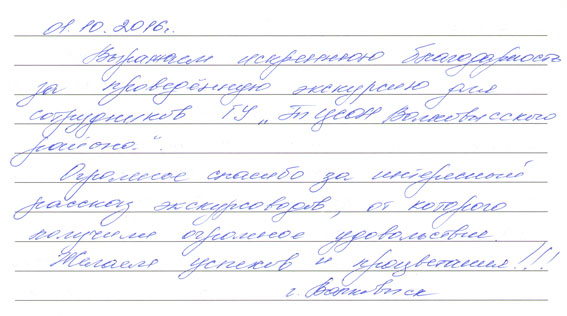 01.10.2016г.
Выражаем искреннюю благодарность
за проведённую экскурсию для
сотрудников ГУ „ТЦСОН Волковысского
района."
Огромное спасибо за интересный
рассказ экскурсоводов, от которого
получили огромное удовольствие.
Желаем успехов и процветания!!!
г. Волковыск